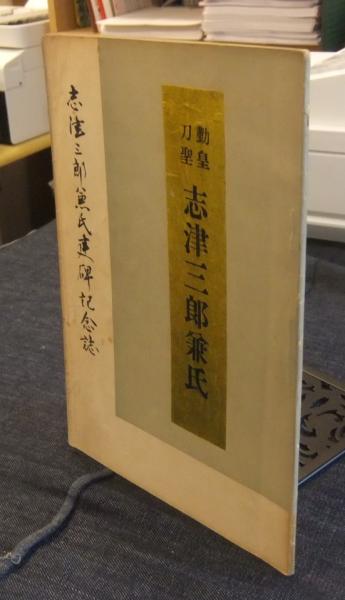 勤皇
刀聖
志津三郎兼氏
志津三郎兼氏建碑記念誌